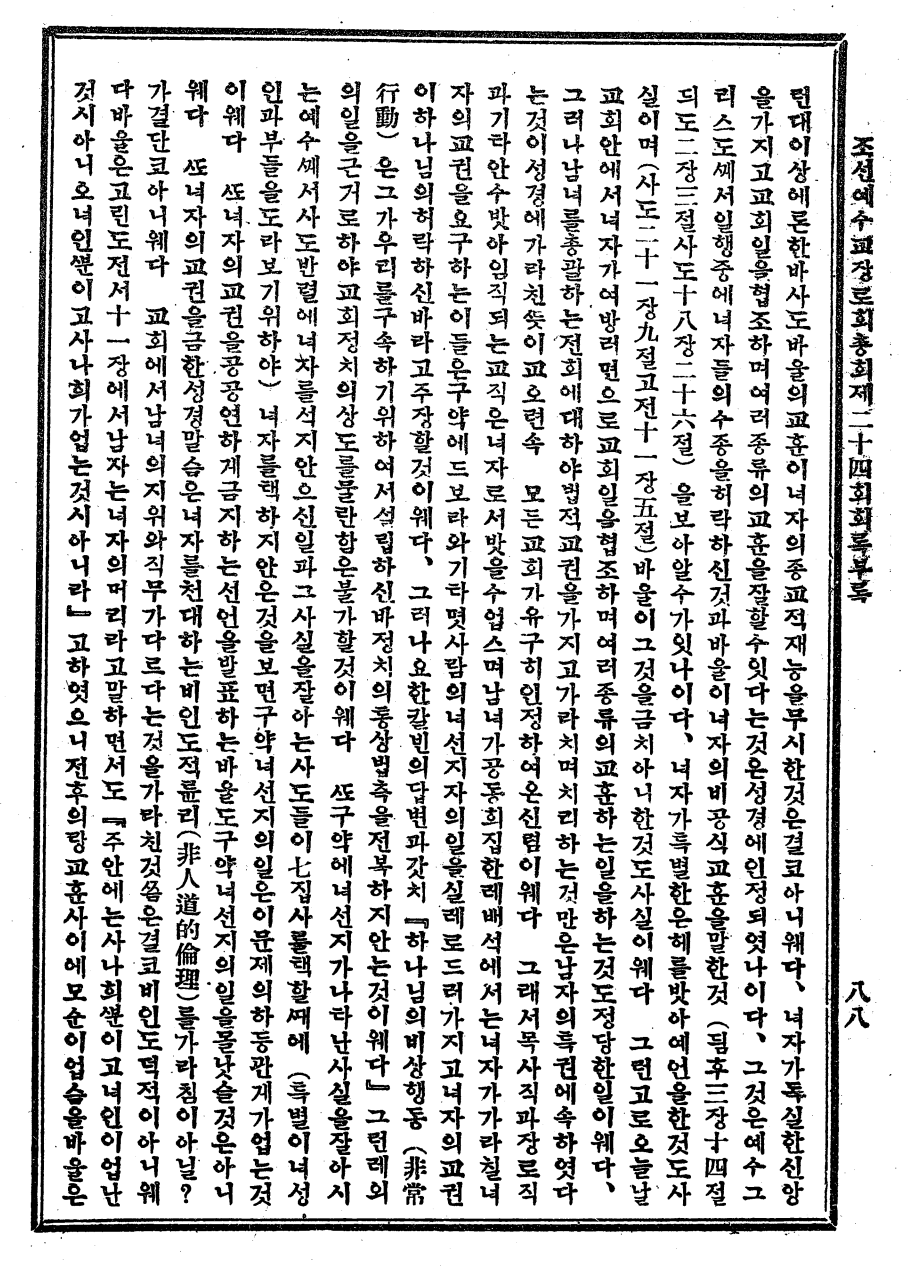 조선예수교장로회총회제二十四회회록부록
八八
련대이상에론한바사도바울의교훈이녀자의종교적재능을부시한것은결코아니웨다、녀자가독실한신앙
을가지고교회일을협조하며여러종류의교훈을잘할수잇다는것은성경에인정되엿나이다、그것은예수그
리스도ᄭᅦ서일행중에녀자들의수종을허락하신것과바울이녀자의비공식교훈을말한것 (딤후三장十四절
듸도二장三절사도十八장二十六절) 을보아알수가잇나이다、녀자가특별한은혜를밧아예언을한것도사
실이며(사도二十一장九절고전十一장五절)바울이그것을금치아니한것도사실이웨다 그런고로오늘날
교회안에서녀자가여방러면으로교회일을협조하며여러종류의교훈하는일을하는것도정당한일이웨다、
그러나남녀를총괄하는전회에대하야법적교권을가지고가라치며치리하는것만은남자의특권에속하엿다
는것이성경에가라친ᄯᅳᆺ이교오련속 모든교회가유구히인정하여온신렴이웨다 그래서목사직과장로직
과기타안수밧아임직되는교직은녀자로서밧을수업스며남녀가공동회집한례배석에서는녀자가가라칠녀
자의교권을요구하는이들은구약에드보라와기타몃사람의녀선지자의일을실례로드러가지고녀자의교권
이하나님의허락하신바라고주장할것이웨다、그러나요한칼빈의답변과갓치『하나님의비상행동 (非常
行動) 은그가우리를구속하기위하여서설립하신바정치의통상법측을전복하지안는것이웨다』그런례외
의일을근거로하야교회정치의상도를물란합은불가할것이웨다 ᄯᅩ구약에녀선지가나타난사실을잘아시
는예수ᄭᅦ서사도반렬에녀자를석지안으신일과그사실을잘아는사도들이七집사를택할ᄯᅢ에 (특별이녀성
인과부들을도라보기위하야) 녀자를택하지안은것을보면구약녀선지의일은이문제의하등관게가업는것
이웨다 ᄯᅩ녀자의교권을공공연하게금지하는선언을발표하는바울도구약녀선지의일을몰낫슬것은아니
웨다 ᄯᅩ녀자의교권을금한성경말슴은녀자를천대하는비인도적륜리(非人道的倫理)를가라침이아닐?
가결단코아니웨다 교회에서남녀의지위와직무가다르다는것을가라친것쯤은결코비인도덕적이아니웨
다바울은고린도전서十一장에서남자는녀자의머리라고말하면서도『주안에는사나희ᄲᅮᆫ이고녀인이업난
것시아니오녀인ᄲᅮᆫ이고사나희가업는것시아니라』고하엿으니전후의랑교훈사이에모순이업슴을바울은